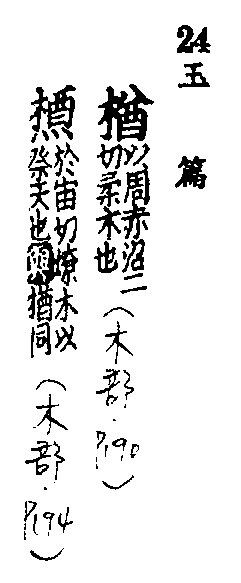 24 玉篇
楢 以周赤沼二切柔木也（木部．P190）
槱 於宙切燎木以祭天也 楢同（木部．P194）